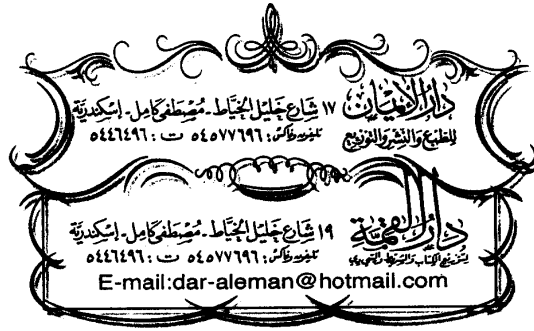 دار الإيمان
للطبع والنشر والتوزيع
١٧ شارع خليل الخياط - مصطفى كامل - إسكندرية
تليفون وفاكس: ٥٤٥٧٧٦٩٦ ت: ٥٤٤٦٤٩٦
دار القمة
لتوزيع الكتاب
١٩ شارع خليل الخياط - مصطفى كامل - إسكندرية
تليفون وفاكس: ٥٤٥٧٧٦٩٦ ت: ٥٤٤٦٤٩٦
E-mail:dar-aleman@hotmail.com